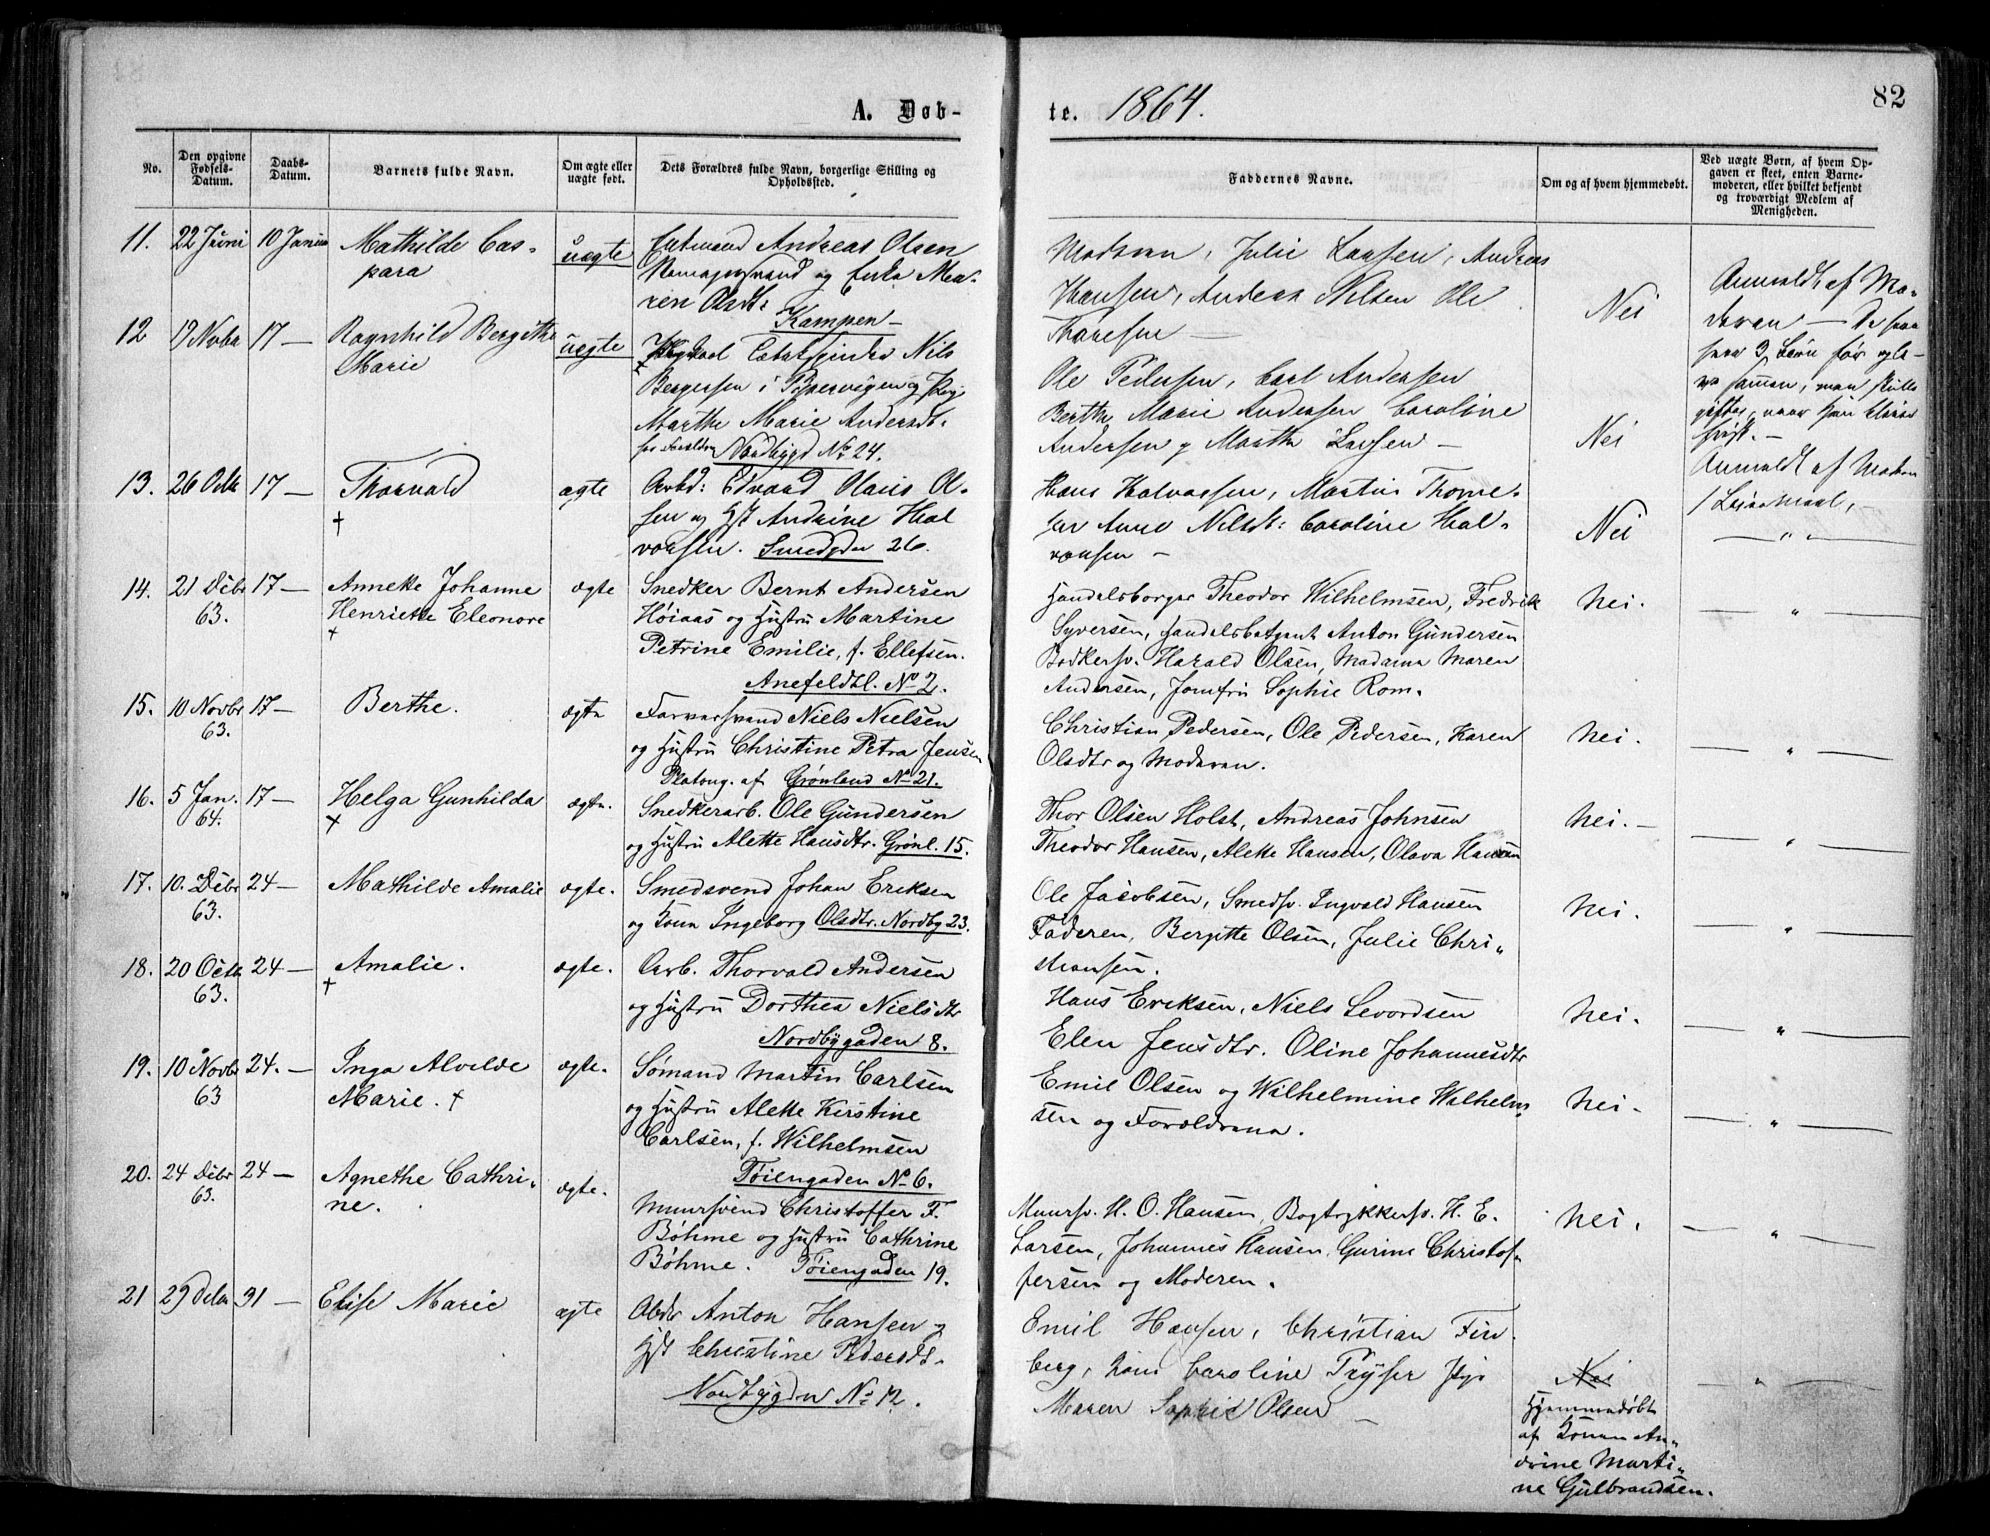 A. Døb-
te. 1864.
82
No.
Den opgivne Fødsels-Datum.
Daabs-Datum.
Barnets fulde Navn.
Om ægte eller uægte født.
Dets Forældres fulde Navn, borgerlige Stilling og Opholdsted.
Faddernes Navne.
Om og af hvem hjemmedøbt.
Ved uægte Børn, af hvem Op-
gaven er skeet, enten Barne-
moderen, eller hvilket bekjendt
og troværdigt Medlem af
Menigheden.
11. 22 Juni 10 Januar Mathilde Cas-
para
uægte
Andreas Olsen
og Enke Ma-
ren Olsdt:
Kampen
Moderen, Julie Larsen, Andreas
Hansen, Anders Nilsen Ole
Thoresen —
Nei
Anmeldt af Mo-
deren —
12 17 — Ragnhild Bergithe
Marie
uægte
Nils
Bergersen i Pipervigen og Pige
Marthe Marie Andersdt.
Nordbygd No 24.
Ole Pedersen, Carl Andersen
Berthe Marie Andersen Caroline
Andersen g Marth Larsen —
Nei
Anmeldt af Moderen
1 Leiermaal, —
13. 26 Octb 17 — Thorvald
†
ægte
Arbd: Edvard Olaus Ol-
sen og Hst Andrine Hal
vorsen. Smedgdn 26.
Hans Halvorsen, Martin Thome-
sen Anne Nilsdt: Caroline Hal-
vorsen —
Nei
— " —
14. 21 Debr 63. 17 — Annette Johanne
Henriette Eleonore
†
ægte
Snedker Bernt Andersen
Høiaas og Hustru Martine
Petrine Emilie, f. Ellefsen.
Anefeldtl. No 2.
Handelsborger Theodor Wilhelmsen, Fredrik
Syversen, Handelsbetjent Anton Gundersen
Bødkersv. Harald Olsen, Madame Maren
Andersen, Jomfru Sophie Rom.
Nei.
— " —
15. 10 Novbr 63. 17 — Berthe.
ægte
Farversvend Niels Nielsen
og Hustru Christine Petra Jensen
Platoug. af Grønland No 21.
Christian Pedersen, Ole Pedersen, Karen
Olsdtr og Moderen.
Nei.
— " —
16. 5 Jan. 64. 17 — Helga Gunhilda
†
ægte.
Snedkerarb. Ole Gundersen
og Hustru Alette Hansdtr. Grønl. 15.
Thor Olsen Holst, Andreas Johnsen
Theodor Hansen, Alette Hansen, Olava Hansen
Nei. —
— " —
17. 10. Debr 63. 24 — Mathilde Amalie
ægte.
Smedsvend Johan Eriksen
og Kone Ingeborg Olsdtr. Nordby 23.
Ole Jacobsen, Smedsv. Ingvald Hansen
Faderen, Bergitte Olsen, Julie Chri-
stiansen.
Nei.
— " —
18. 20 Octb 63. 24 — Amalie.
†
ægte.
Arb. Thorvald Andersen
og Hustru Dorthea Nielsdtr
Nordbygaden 8.
Hans Eriksen, Niels Sevordsen
Elen Jensdtr. Oline Johannesdtr
Nei.
— " —
19. 10 Novbr 63 24. — Inga Alvilde
Marie. †
ægte.
Sømand Martin Carlsen
og Hustru Alette Kirstine
Carlsen, f. Wilhelmsen
Tøiengaden No 6.
Emil Olsen og Wilhelmine Wilhelm-
sen og Forældrene.
Nei.
— " —
20. 24 Debr 63. 24 — Agnethe Cathri-
ne.
ægte.
Muursvend Christoffer F.
Bøhme og Hustru Cathrine
Bøhme. Tøiengaden 19.
Muursv. H. O. Hansen, Bogtrykkersv. H. E.
Larsen, Johannes Hansen, Gurine Christof-
fersen og Moderen.
Nei.
— " —
21 29 Debr 31 — Elise Marie
ægte
Arbdr Anton Hansen og
Hst Christine Pedersdt.
Nordbygdn No 12.
Emil Hansen, Christian Fin-
berg, Kone Caroline Tryser Pige
Maren Sophie Olsen —
Nei
Hjemmedøbt
af Konen An-
drine Marti-
ne Gulbrandsen.
— " —